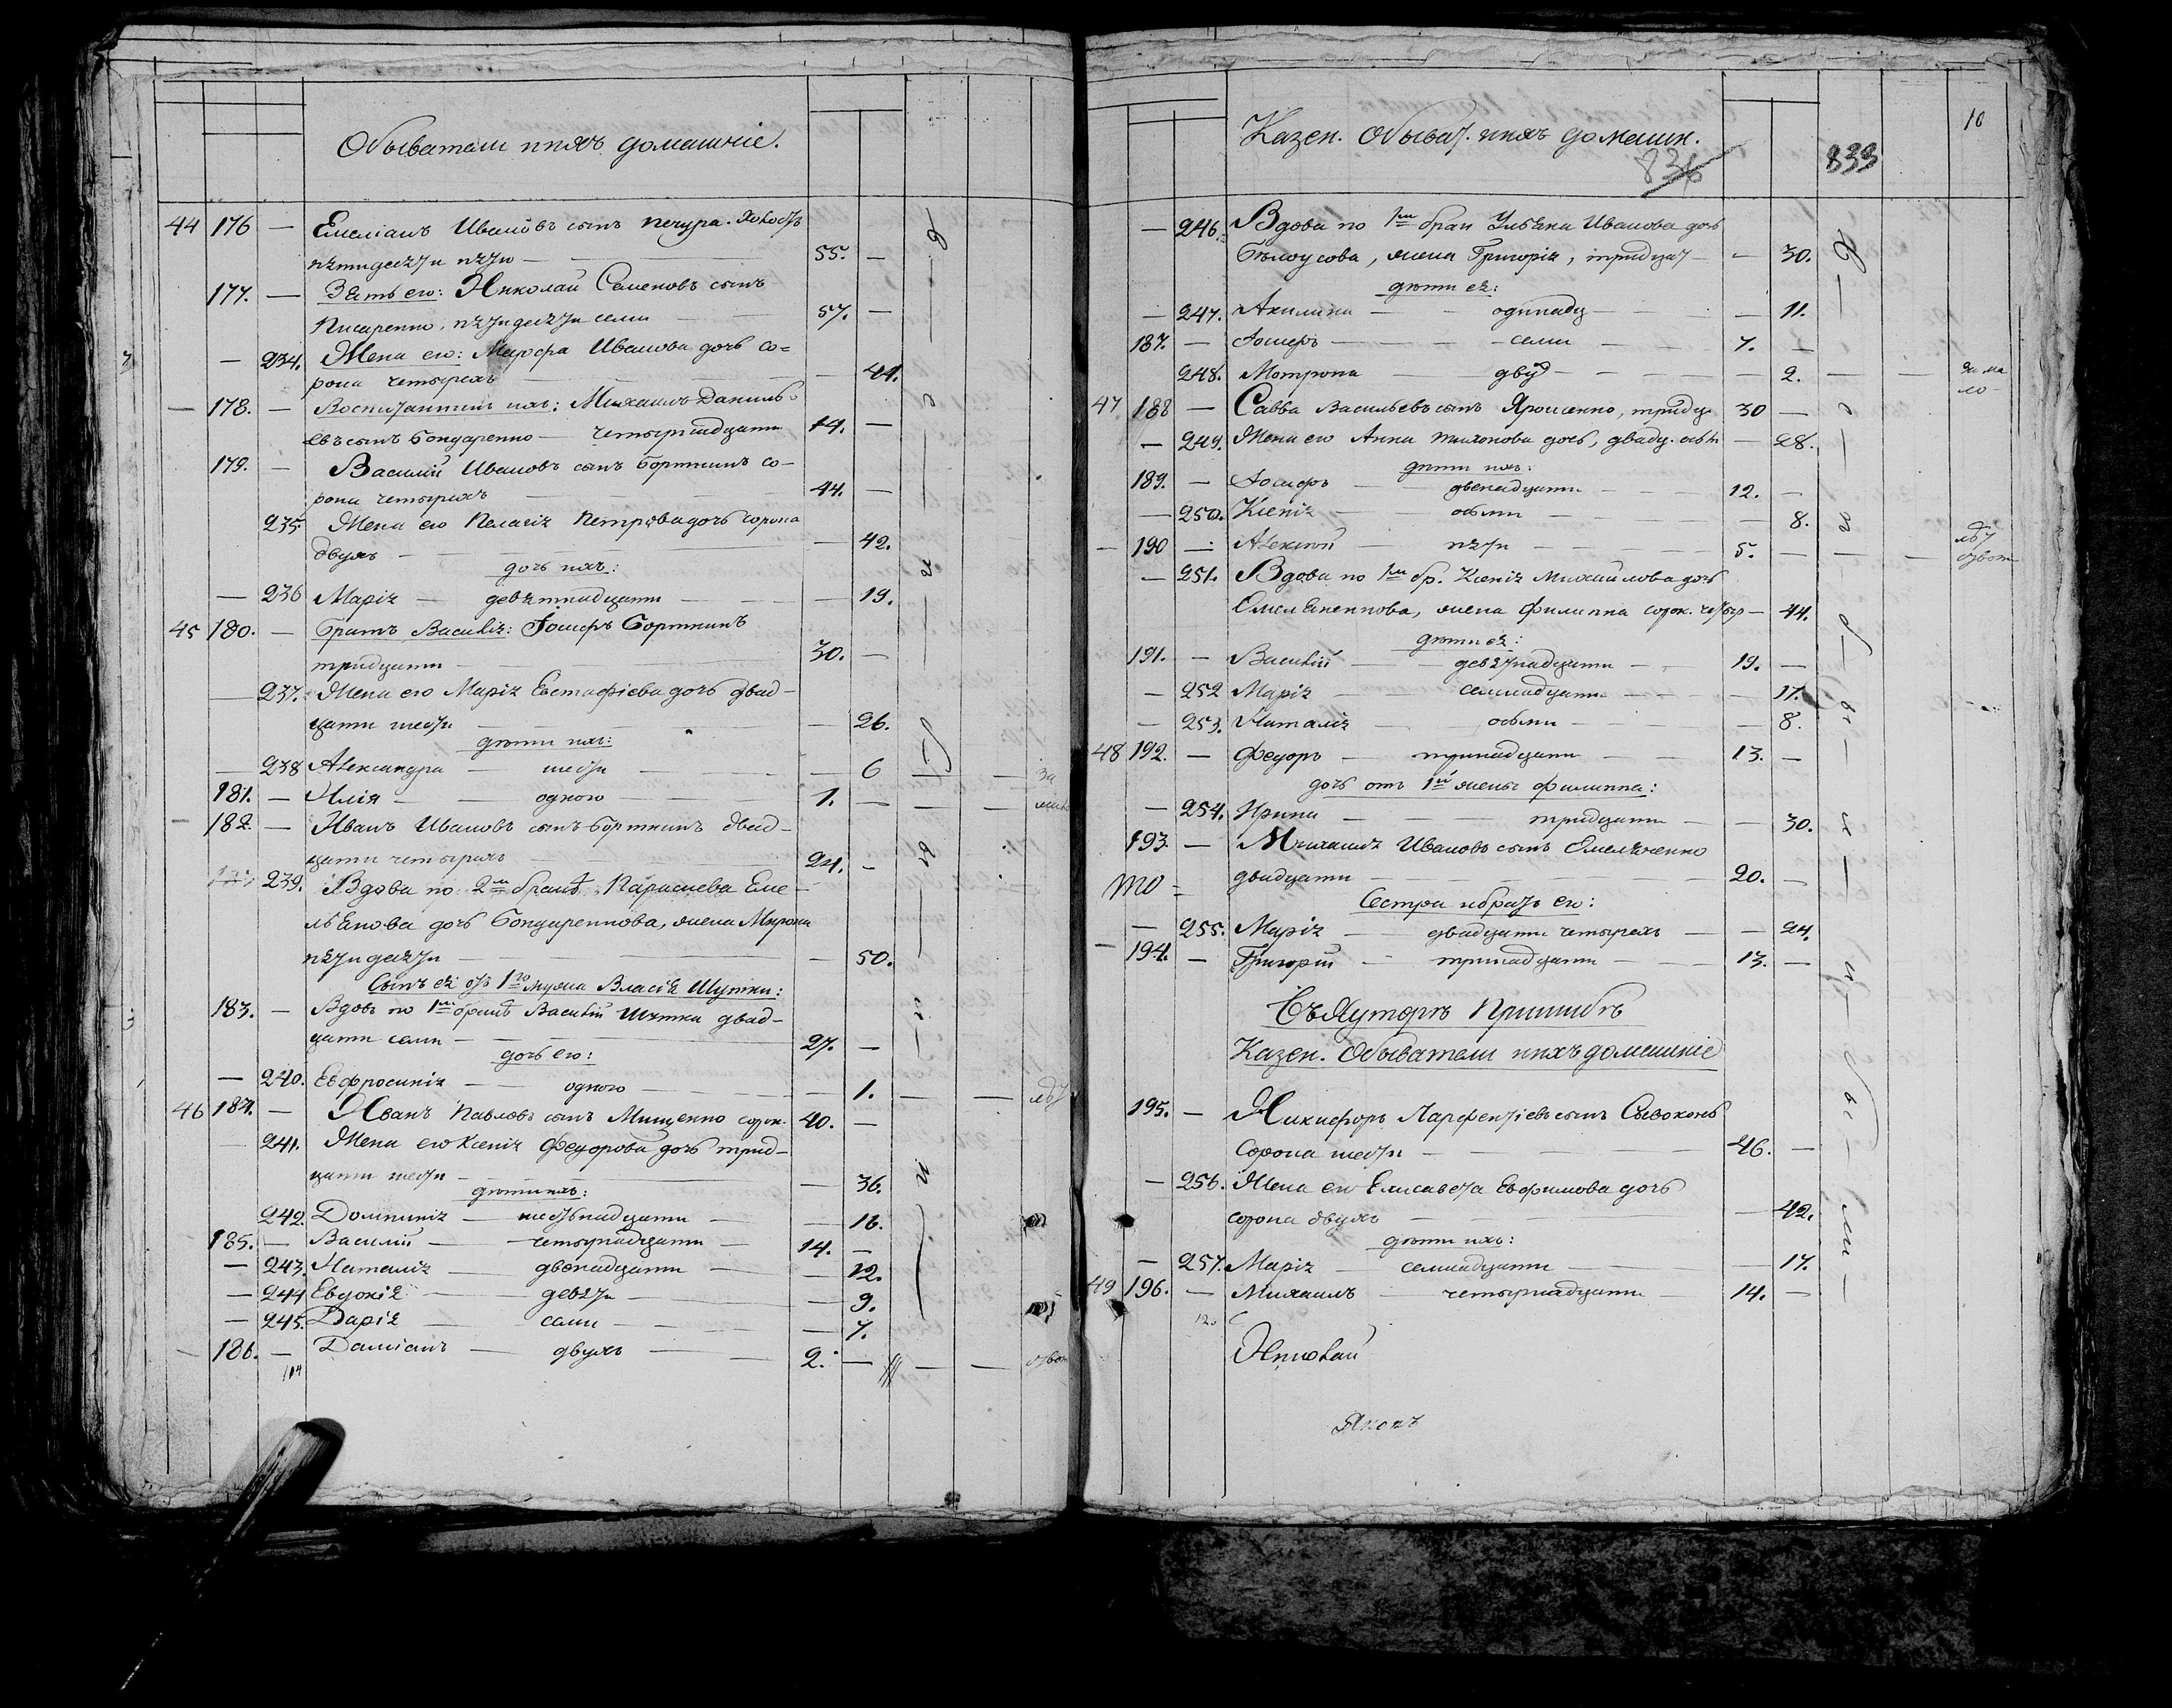 Обыватели и ихъ домашніе.
44 176 — Емеліанъ Ивановъ сынъ Печура. Холостъ
пятидесяти пяти — 55. —
177. — Зять его: Николай Семеновъ сынъ
Писаренко, пятидесяти семи — 57. —
— 234. Жена его: Марфа Иванова дочь со=
рока четырехъ — 44.
— 178. — Воспитанникъ ихъ: Михаилъ Даниль
евъ сынъ Бондаренко — четырнадцати 14. —
179. — Василій Ивановъ сынъ Борткинъ со-
рока четырехъ 44. —
235. Жена его Пелагія Петрова дочь сорока
двухъ — — 42.
дочь ихъ:
— 236 Марія — девятнадцати — — 19.
45 180. — Братъ Василія: Іосифъ Борткинъ
тридцати — 30. —
— 237. Жена его Марія Евстафіева дочь двад-
цати шести — — 26.
дѣти ихъ:
— 238 Александра — шести — — 6
181. — Илія — одного 1. —
— 182. — Иванъ Ивановъ сынъ Борткинъ двад-
цати четырехъ 24. —
239. Вдова по 2мъ бракѣ Параскева Еме-
льянова дочь Бондаренкова, жена Мирона
пятидесяти — — 50.
Сынъ ея отъ 1го мужа Власія Шутки:
183. — Вдовъ по 1мъ бракѣ Василій Шутка двад-
цати семи — 27. —
дочь его:
— 240. Евфросинія — одного — — 1.
46 184. — Иванъ Павловъ сынъ Мищенко сорок. 40. —
241. Жена его Ксенія Федорова дочь трид-
цати шести — — 36.
дѣти ихъ:
242. Домникія — шестьнадцати — — 16.
185. — Василій — четырнадцати — 14. —
— 243. Наталія — двенадцати — — 12.
— 244 Евдокія — девяти — — 9.
— 245. Дарія — семи — — 7.
— 186. — Даміанъ — двухъ — 2. —
Казен. Обыват. и ихъ домашн.
836
833
10
— 246. Вдова по 1мъ брак Ульяна Иванова дочь
Бѣлоусова, жена Григорія, тридцат — 30.
дѣти ея:
— 247. Акилина — одинадц — — 11.
187. — Іосифъ — семи — 7. —
248. Мотрона — двухъ — 2.
47 188 — Савва Васильевъ сынъ Ярошенко, тридц. 30 —
— 249. Жена его Анна Тихонова дочь, двадц. осьм — 28.
дѣти ихъ:
189. — Іосифъ — двенадцати — 12. —
— 250. Ксенія — осьми — — 8.
— 190 — Алексій — пяти — 5. —
— 251. Вдова по 1мъ бр. Ксенія Михайлова дочь
Омельяненкова, жена Филиппа сорок. четыр — 44.
дѣти ея:
191. — Василій — девятнадцати — 19. —
— 252 Марія — семнадцати — — 17.
— 253. Наталія — осьми — — 8.
48 192. — Федоръ — тринадцати — 13. —
дочь отъ 1й жены Филиппа:
— 254. Ирина — тридцати — — 30.
193. — Михаилъ Ивановъ сынъ Омельяненко
двадцати — 20. —
Сестра и братъ его:
— 255. Марія — двадцати четырехъ — — 24.
— 194. — Григорій — тринадцати — 13. —
Въ Хуторѣ Пришибѣ
Казен. Обыватели и ихъ домашніе
195. — Никифоръ Парфентіевъ сынъ Сывоконь
сорока шести — 46. —
— 256. Жена его Елисавета Евфимова дочь
сорока двухъ — — 42.
дѣти ихъ:
— 257. Марія — семнадцати — — 17.
49 196. — Михаилъ — четырнадцати — 14. —
Николай